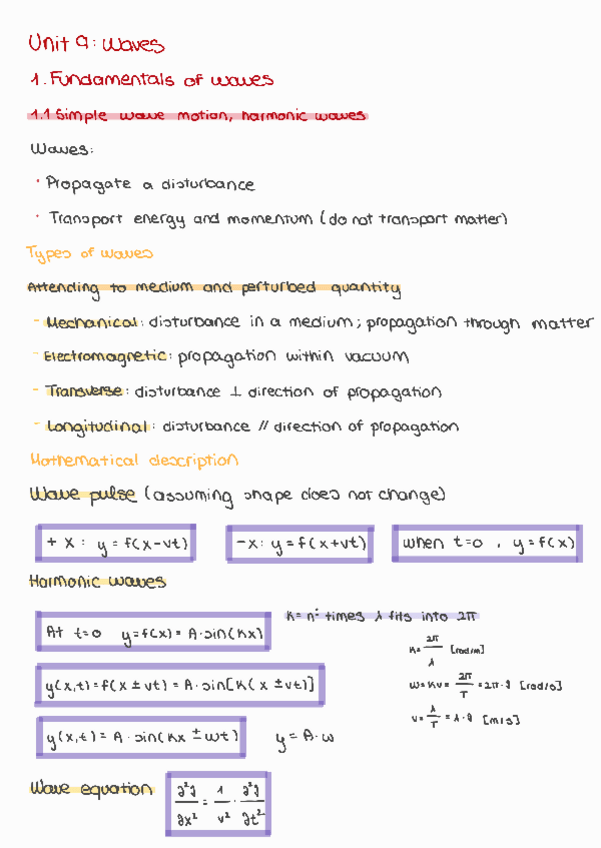 Unit 9: Waves
1. Fundamentals of waves
1.1 Simple wave motion, harmonic waves
Waves:
· Propagate a disturbance
· Transport energy and momentum (do not transport matter)
Types of waves
Attending to medium and perturbed quantity
- Mechanical: disturbance in a medium; propagation through matter
- Electromagnetic: propagation within vacuum
- Transverse: disturbance ⊥ direction of propagation
- Longitudinal: disturbance // direction of propagation
Mathematical description
Wave pulse (assuming shape does not change)
+ x: y = f(x-vt) -x: y = f(x+vt) when t=0 , y=f(x)
Harmonic waves
At t=0 y=f(x) = A·sin(kx) k= nº times λ fits into 2π
k= 2π/λ [rad/m]
y(x,t)=f(x ± vt) = A·sin[k(x ± vt)] ω=kv= 2π/T =2π·f [rad/s]
v= λ/T = λ·f [m/s]
y(x,t) = A·sin(kx ± ωt) y = A·ω
Wave equation ∂²y/∂x² = 1/v² · ∂²y/∂t²